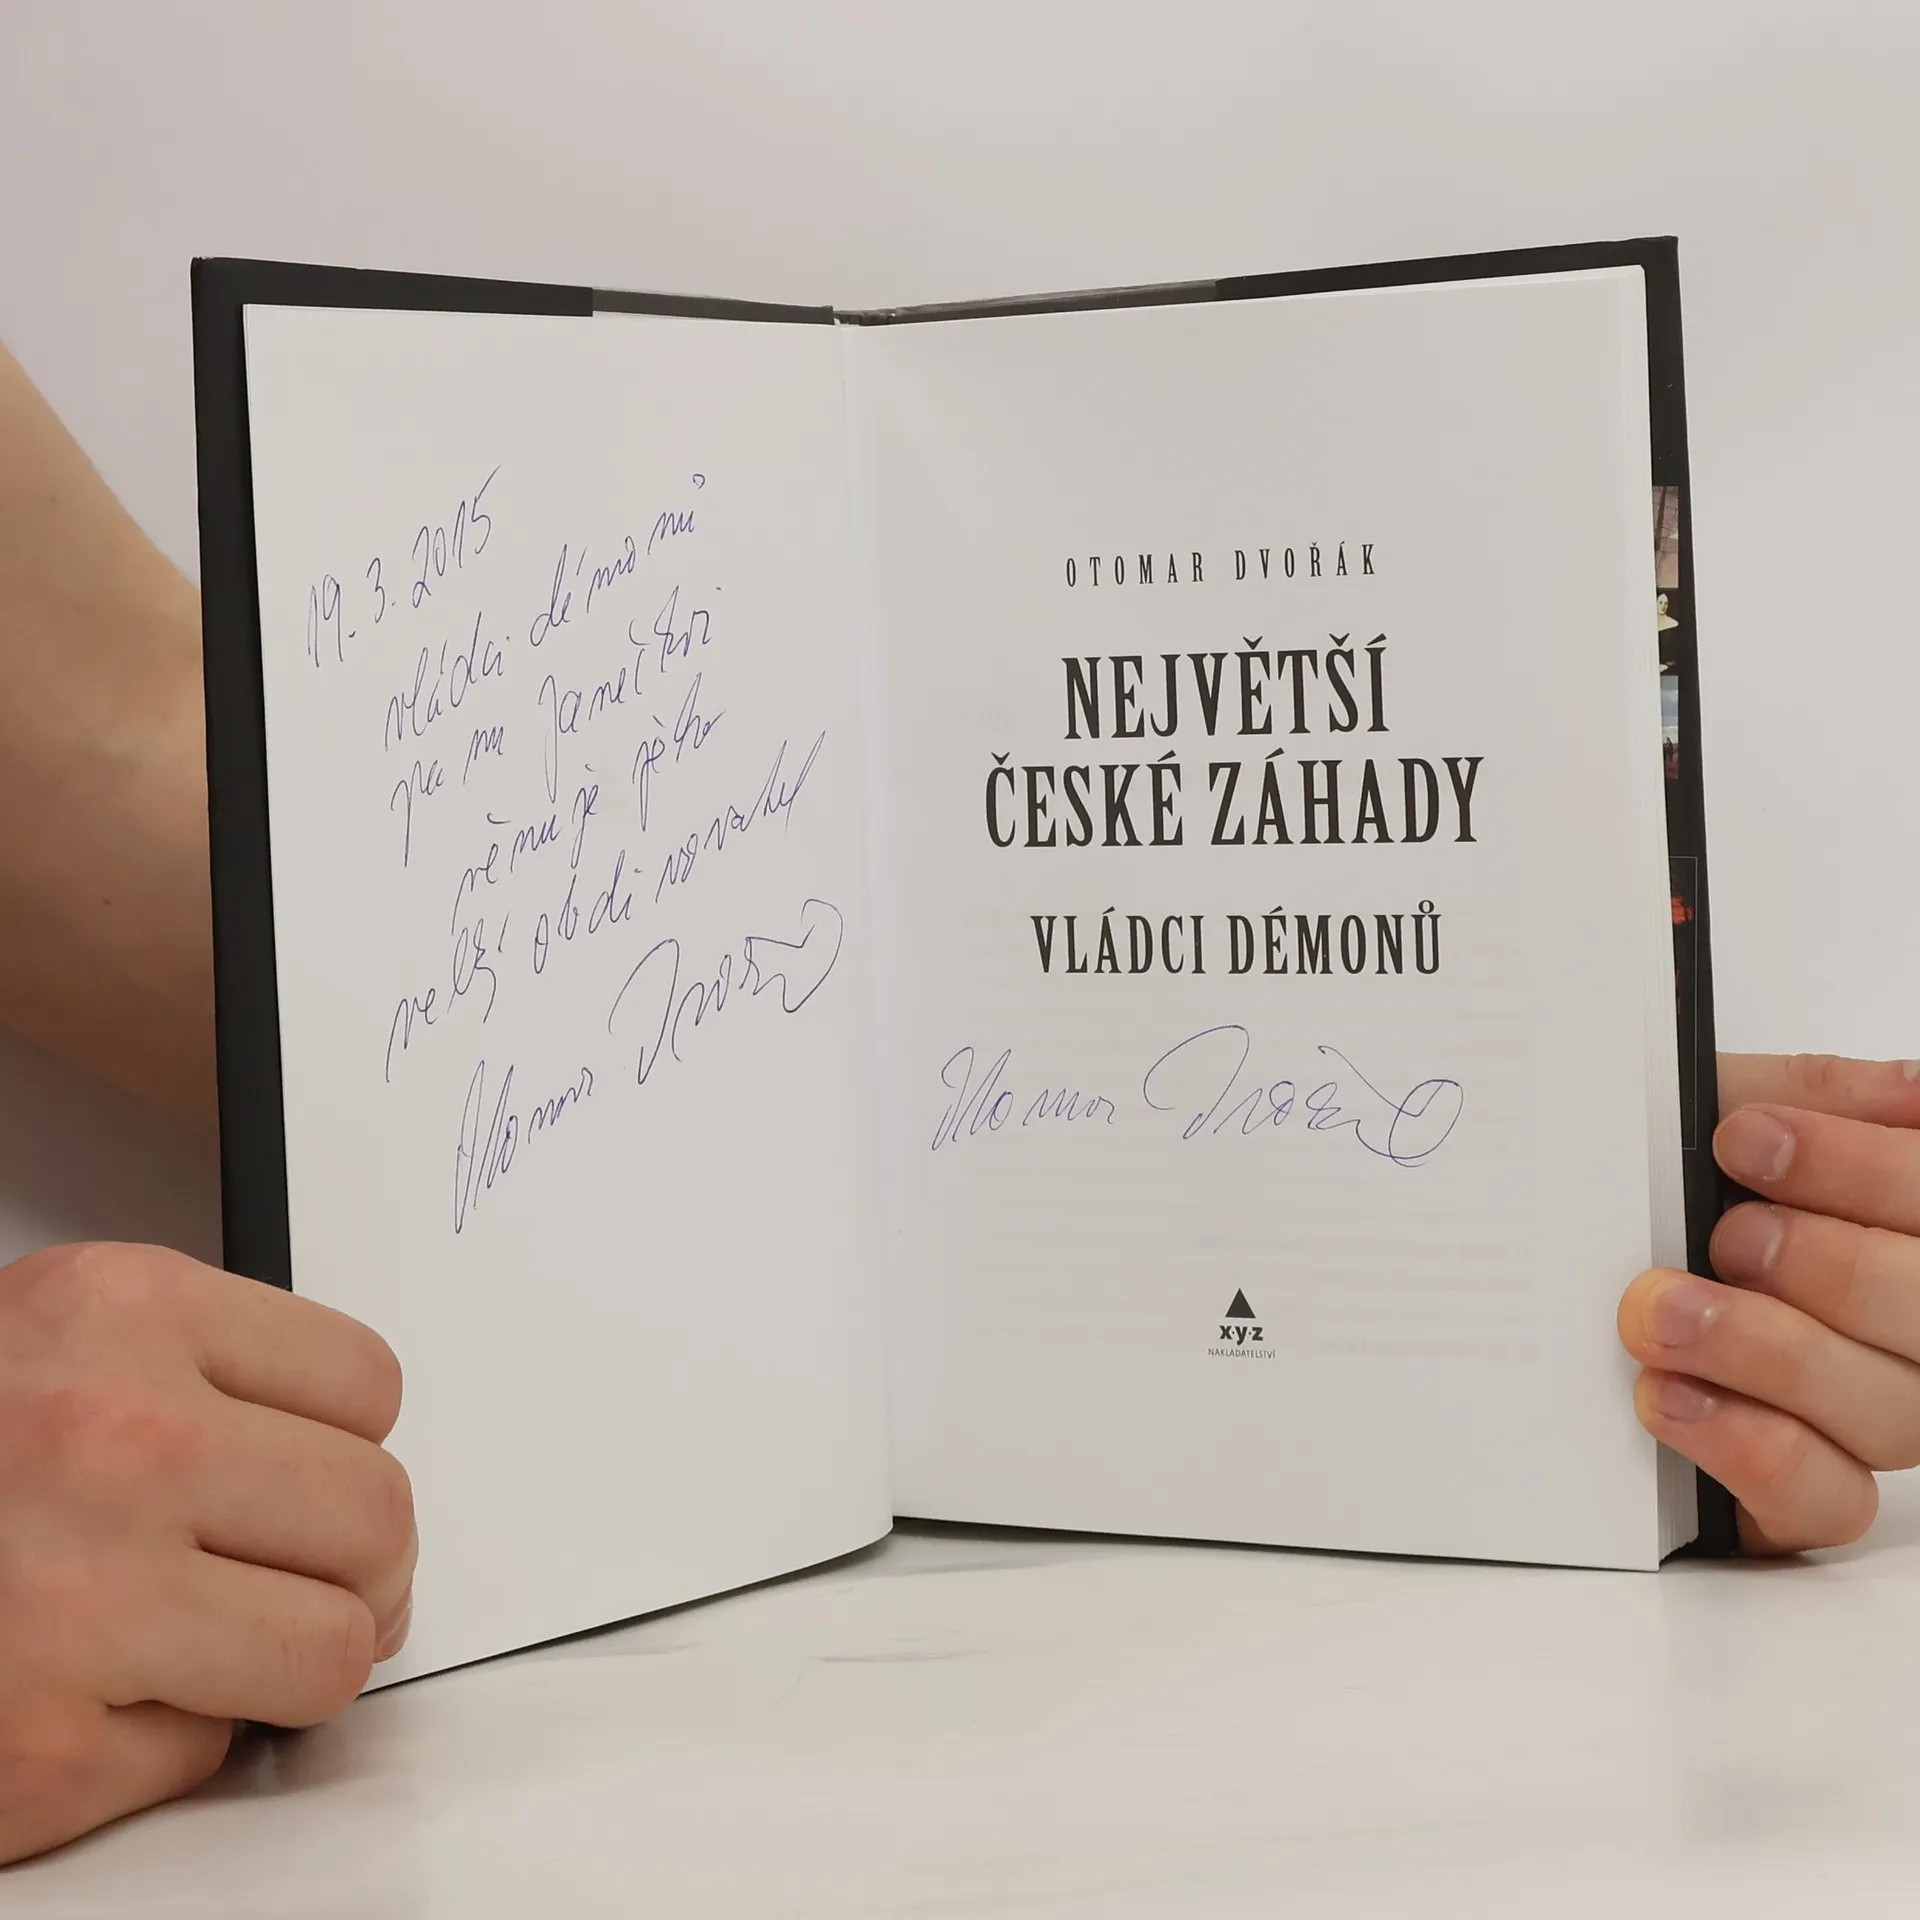 19. 3. 2015
vládci démonů
panu Janečkovi
věnuje jeho
velký obdivovatel
Otomar Dvořák
OTOMAR DVOŘÁK
NEJVĚTŠÍ
ČESKÉ ZÁHADY
VLÁDCI DÉMONŮ
Otomar Dvořák
x·y·z
NAKLADATELSTVÍ